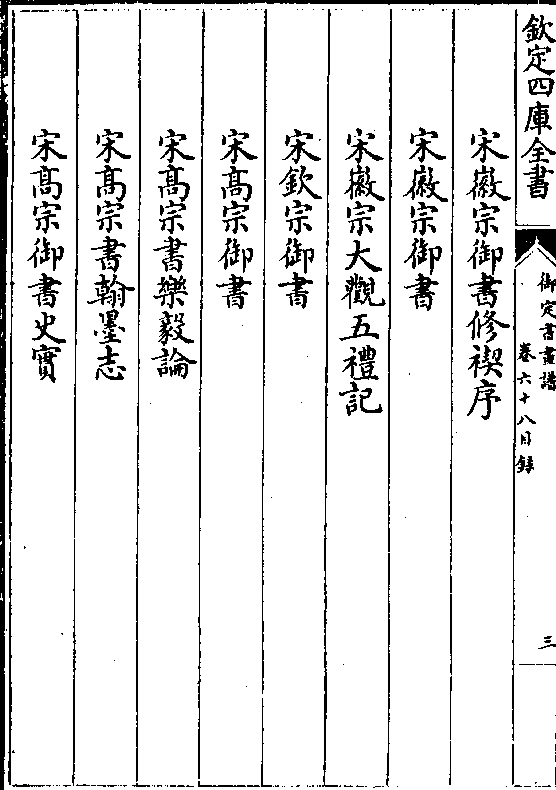 欽定四庫全書
御定書畫譜
卷六十八目録
三
宋徽宗御書修禊序
宋徽宗御書
宋徽宗大觀五禮記
宋欽宗御書
宋髙宗御書
宋髙宗書樂毅論
宋髙宗書翰墨志
宋髙宗御書史實